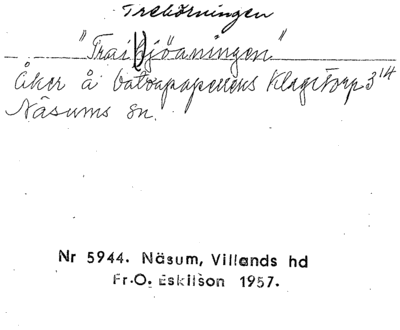 Trehörningen
"Traihjöaningen"
Åker å Klagstorp 3¹⁴
Näsums sn.
Nr 5944. Näsum, Villands hd
Fr. O. Eskilson 1957.